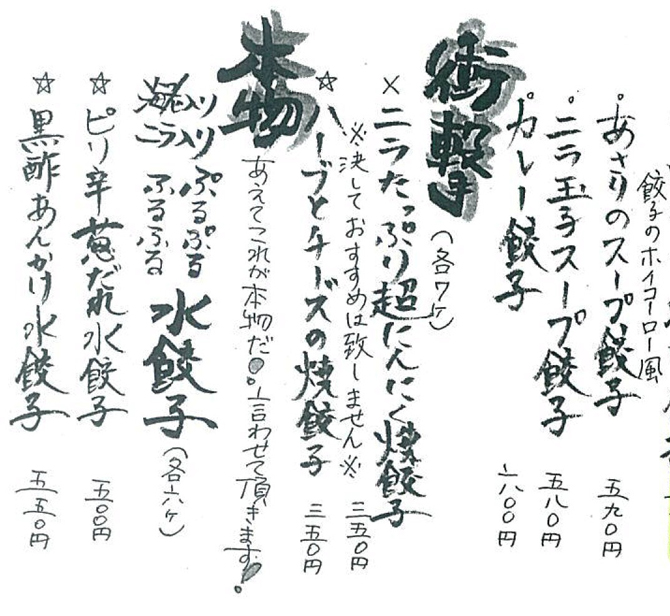 餃子のホイコーロー風
・あさりのスープ餃子 五九〇円
・ニラ玉子スープ餃子 五八〇円
・カレー餃子 六〇〇円
衝撃 (各7ヶ)
×ニラたっぷり超にんにく焼餃子 三五〇円
※決しておすすめは致しません※
☆ハーブとチーズの焼餃子 三五〇円
本物
あえてこれが本物だ!と言わせて頂きます!
海老入り ぷるぷる
ニラ入り ふるふる
水餃子 (各六ヶ)
☆ピリ辛葱だれ水餃子 五〇〇円
☆黒酢あんかけ水餃子 五五〇円